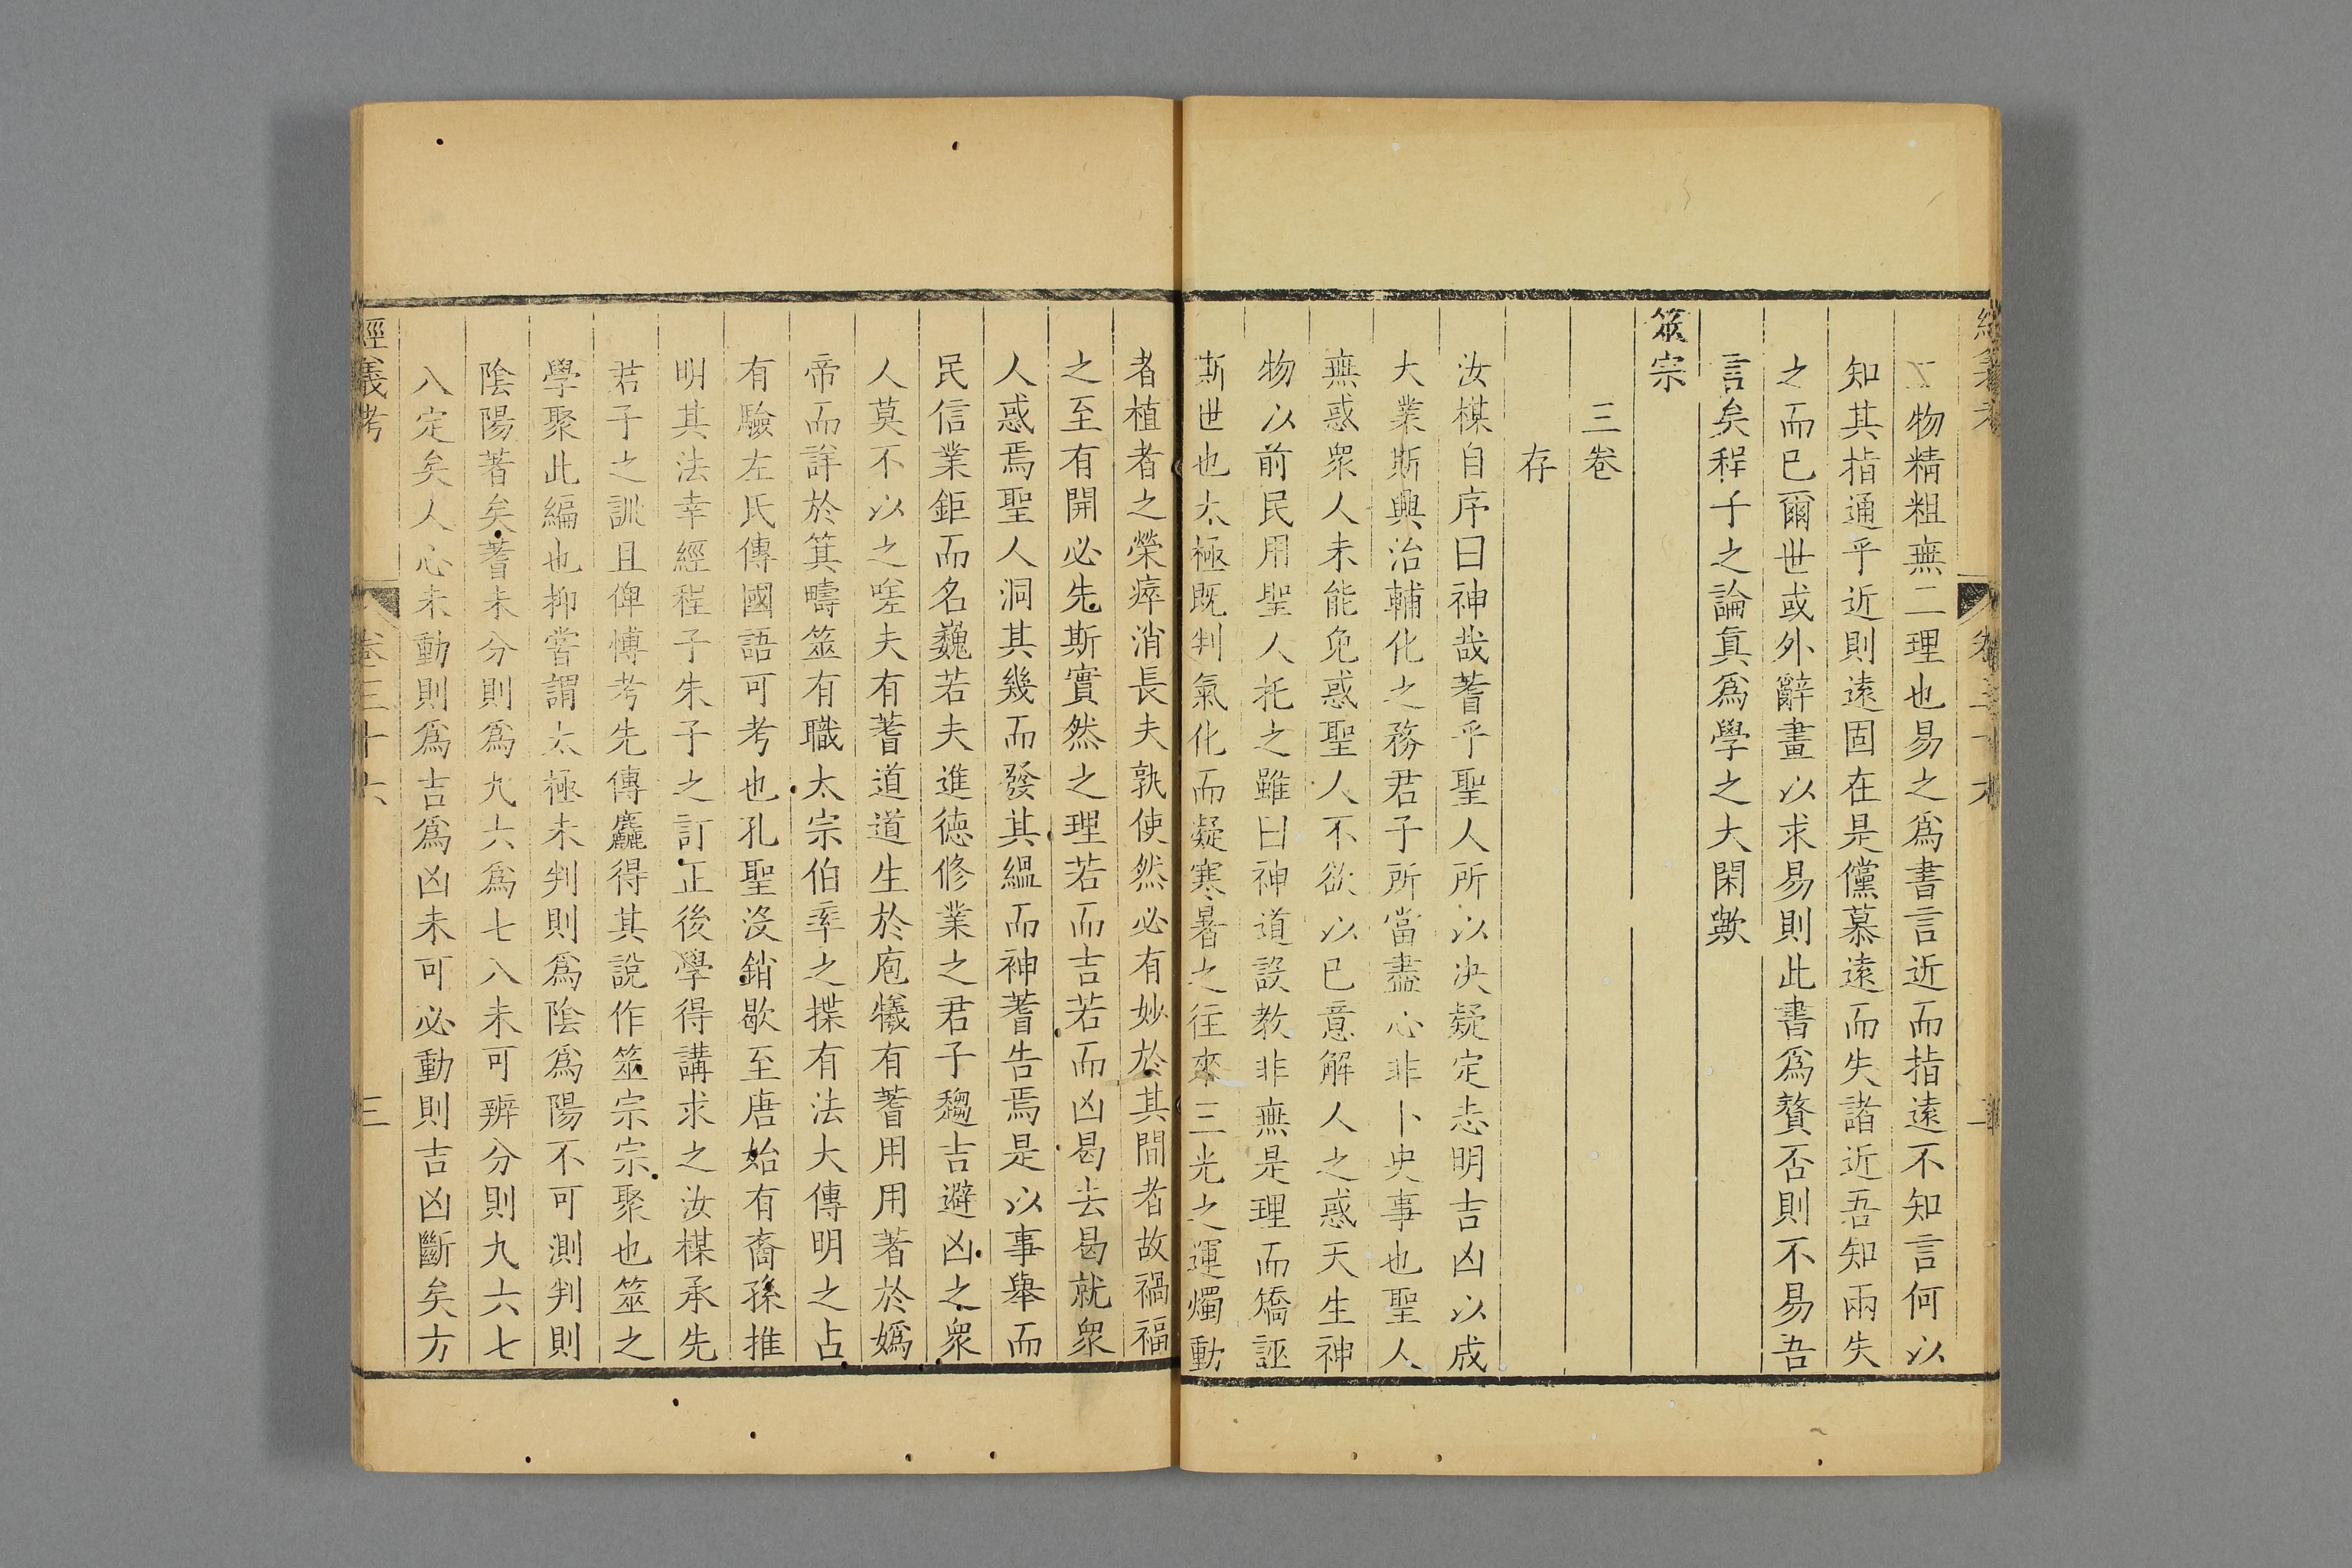 物精粗無二理也易之爲書言近而指遠不知言何以
知其指通乎近則遠固在是儻慕遠而失諸近吾知兩失
之而已爾世或外辭畫以求易則此書爲贅否則不易吾
言矣程子之論真爲學之大閑歟
筮宗
三卷
存
汝楳自序曰神哉蓍乎聖人所以决疑定志明吉凶以成
大業斯興治輔化之務君子所當盡心非卜史事也聖人
無惑衆人未能免惑聖人不欲以已意解人之惑天生神
物以前民用聖人托之雖曰神道設教非無是理而矯誣
斯世也太極既判氣化而凝寒暑之往來三光之運燭動
者植者之榮瘁消長夫孰使然必有妙於其間者故禍福
之至有開必先斯實然之理若而吉若而凶曷去曷就衆
人惑焉聖人洞其幾而發其緼而神蓍告焉是以事舉而
民信業鉅而名巍若夫進德修業之君子趨吉避凶之衆
人莫不以之嗟夫有蓍道道生於庖犧有蓍用用著於嬀
帝而詳於箕疇筮有職太宗伯率之揲有法大傳明之占
有驗左氏傳國語可考也孔聖沒銷歇至唐始有裔孫推
明其法幸經程子朱子之訂正後學得講求之汝楳承先
君子之訓且俾博考先傳麤得其說作筮宗宗聚也筮之
學聚此編也抑嘗謂太極未判則爲陰爲陽不可測判則
陰陽著矣蓍未分則爲九六爲七八未可辨分則九六七
八定矣人心未動則爲吉爲凶未可必動則吉凶斷矣方
經義考
卷三十六
三